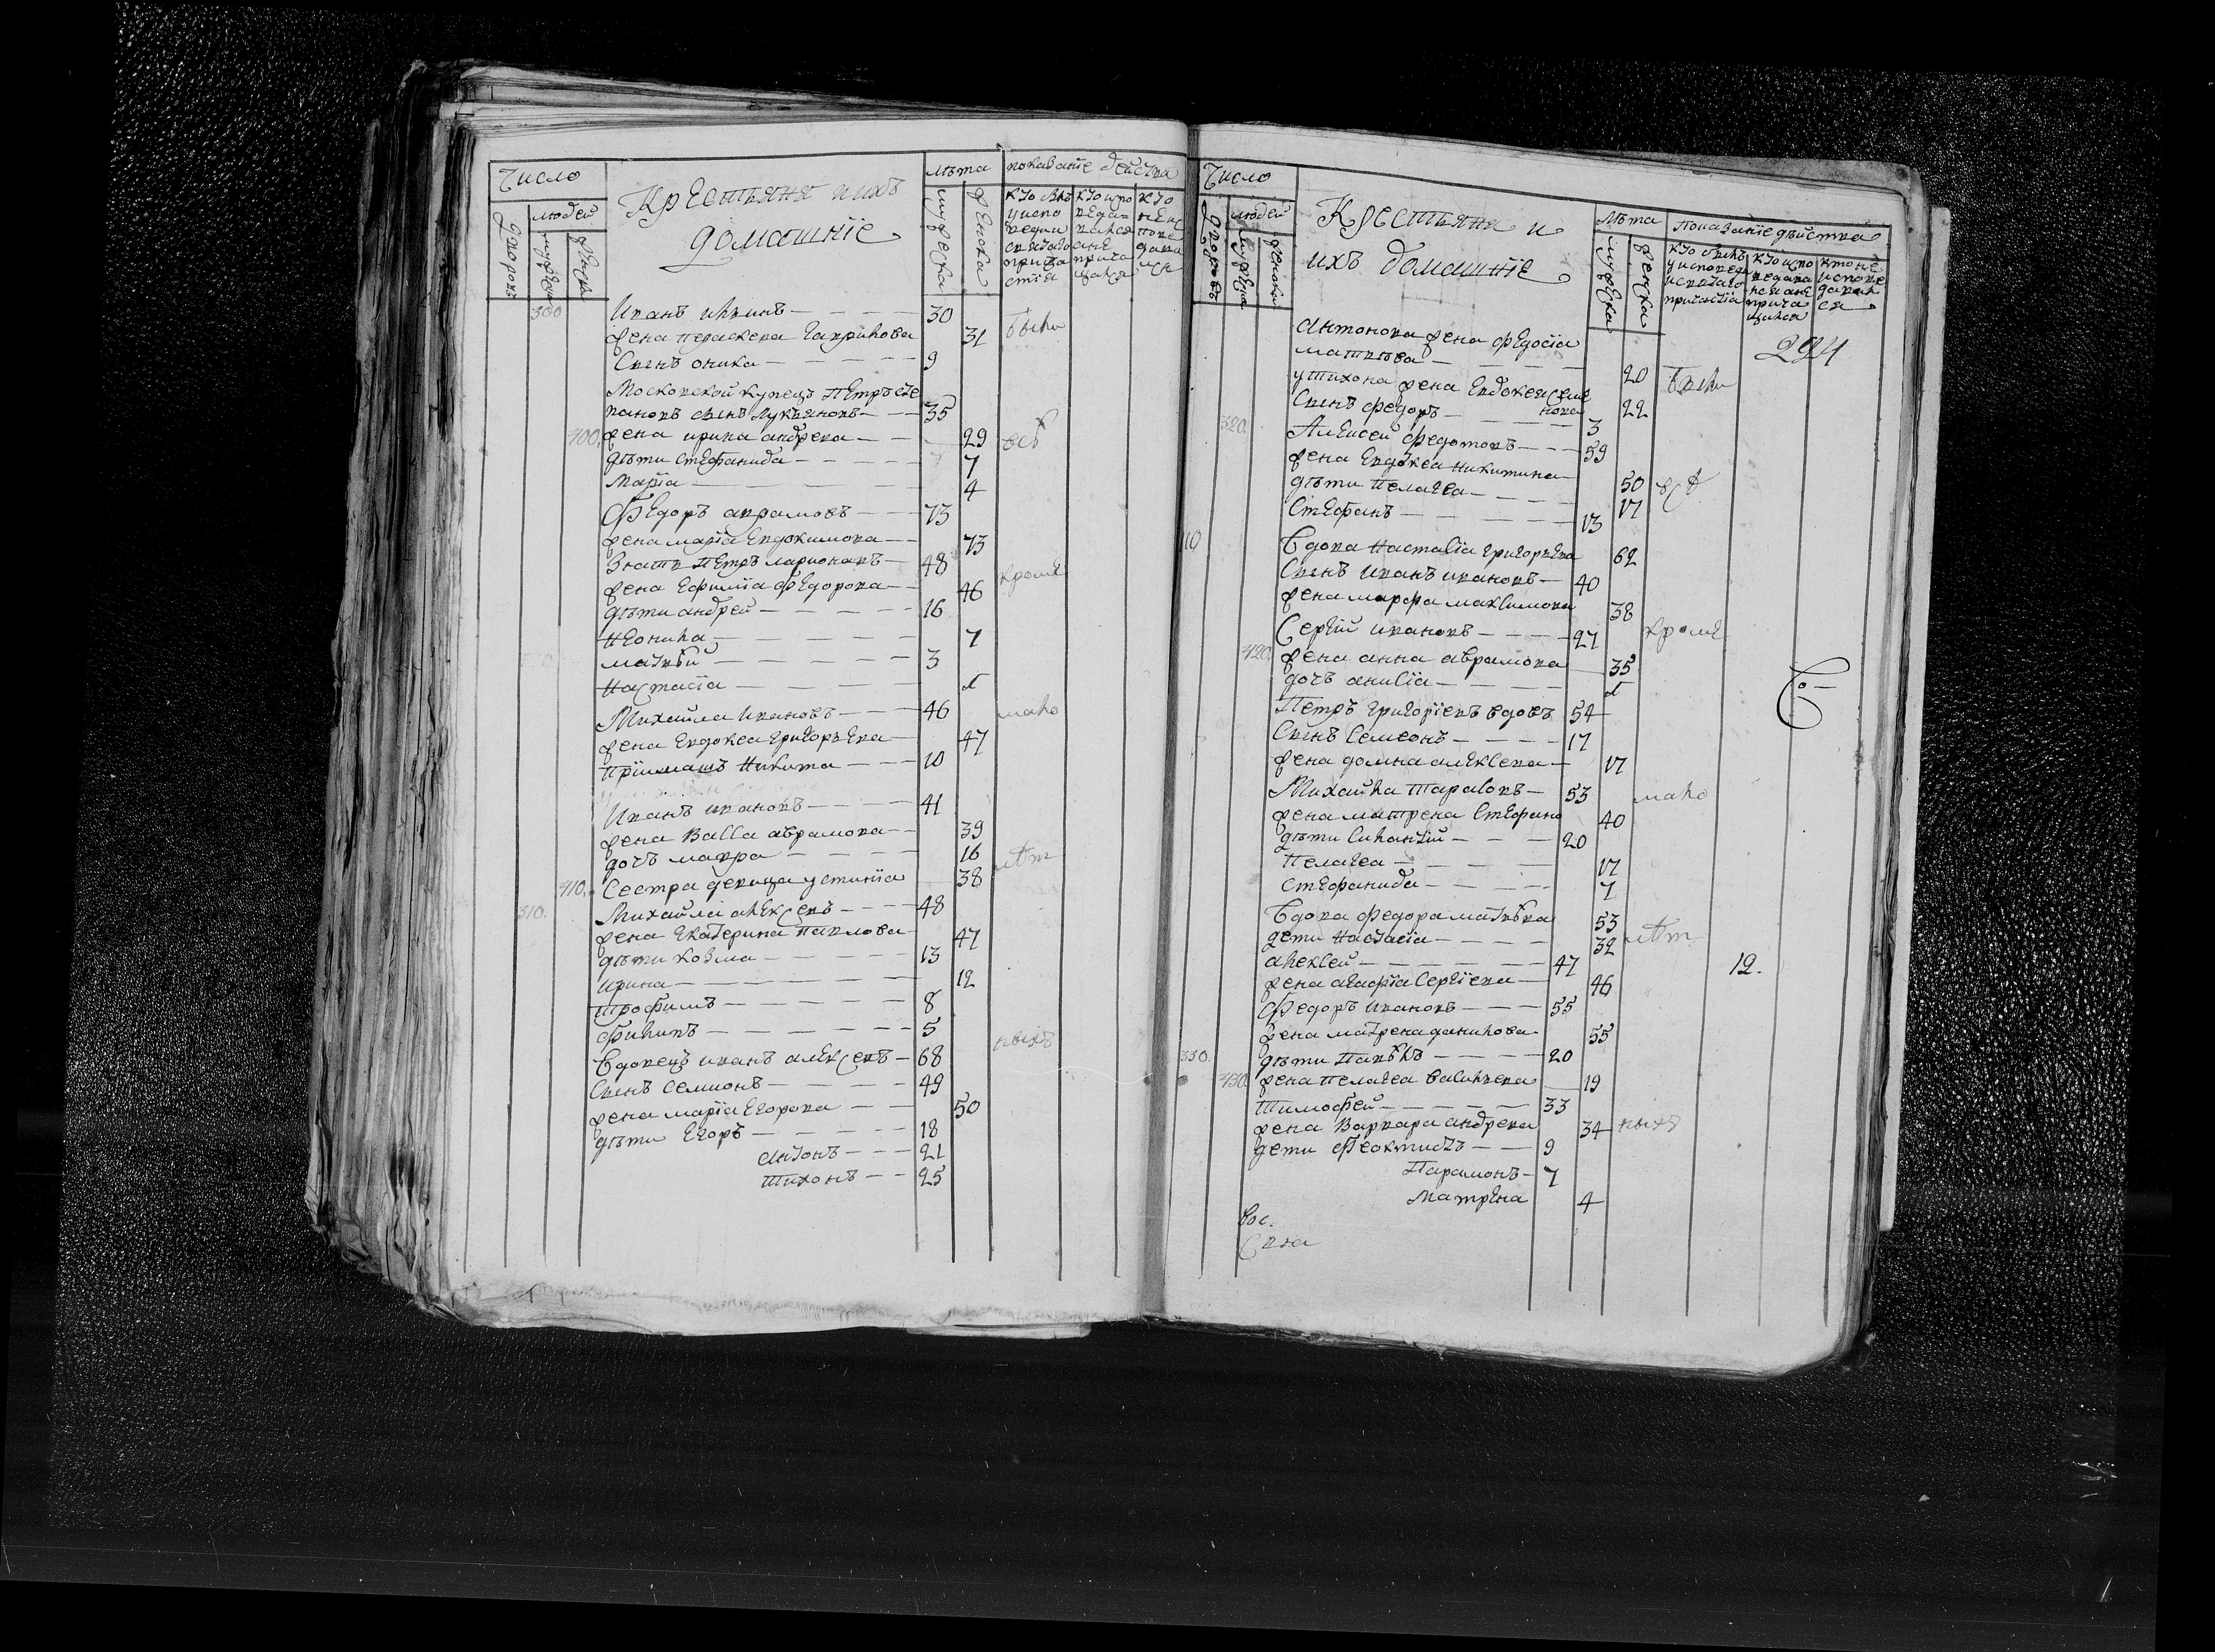 Число
людей
дворовъ
мужеска
женска
Крестьяня ихъ
домашніе
лѣта
мужеска
женска
показаніе действа
кто былъ у исповеди и святаго причастія
кто исповедался а не причащался
кто не исповедался
300 Иванъ ильинъ 30
жена параскева гаврилова 31 были
Сынъ оника 9
Московской купецъ Петръ сте
пановъ сынъ лукьяновъ 35
400. жена ирина андрева 29 всѣ
дѣти стефанида 7
Марїа 4
Федоръ аврамовъ 73
жена марїа евдокимова 73
Зять Петръ ларионовъ 48
жена ефимїа федорова 46 кроме
дѣти андрей 16
Неонила 7
матвѣй 3
Настасїа
Михайла ивановъ 46 мало
жена евдокеа григорьева 47
Прїимашъ Никита 10
Иванъ ивановъ 41
жена васса аврамова 39
дочь мавра 16 лѣт
410. Сестра девица устинїа 38
310. Михайла алексевъ 48
жена екатерина павлова 47
дѣти козма 13
ирина 12
трофимъ 8
филипъ 5 ныхъ
Вдовецъ иванъ алексевъ 68
Сынъ семионъ 49
жена марїа егорова 50
дѣти егоръ 18
антонъ 21
тихонъ 25
Число
людей
дворовъ
мужеска
женска
Крестьяня и
ихъ домашніе
лѣта
мужеска
женска
Показаніе дѣйства
кто былъ у исповеди и святаго причастїа
кто исповедался а не причащался
кто не исповедался
294
антонова жена федосїа
матвѣва 20 были
у тихона жена евдокеа семе
нова 22
Сынъ федоръ 3
320. Алексей федотовъ 59
жена евдокеа никитина 50 всѣ
дѣти пелагеа 17
Стефанъ 13
110 Вдова Наталїа григорьева 62
Сынъ иванъ ивановъ 40
жена марфа максимова 38
Сергїй ивановъ 27 кроме
420. жена анна аврамова 35
дочь анисїа
Петръ григорїевъ вдовъ 54
Сынъ Семеонъ 17
жена домна алексева 17
Михайла тарасовъ 53 мало
жена матрена стефано 40
дѣти силантїй 20
Пелагеа 17
стефанида 7
Вдова федора матвѣва 53
дети настасїа 32 лѣт
алексей 47 12.
жена агафїа сергїева 46
Федоръ ивановъ 55
жена матрена данилова 55
330. дѣти Павѣлъ 20
430 жена пелагеа васильева 19
Тимофей 33
жена варвара андрева 34 ныхъ
дети феоктистъ 9
Парамонъ 7
матрена 4
вос.